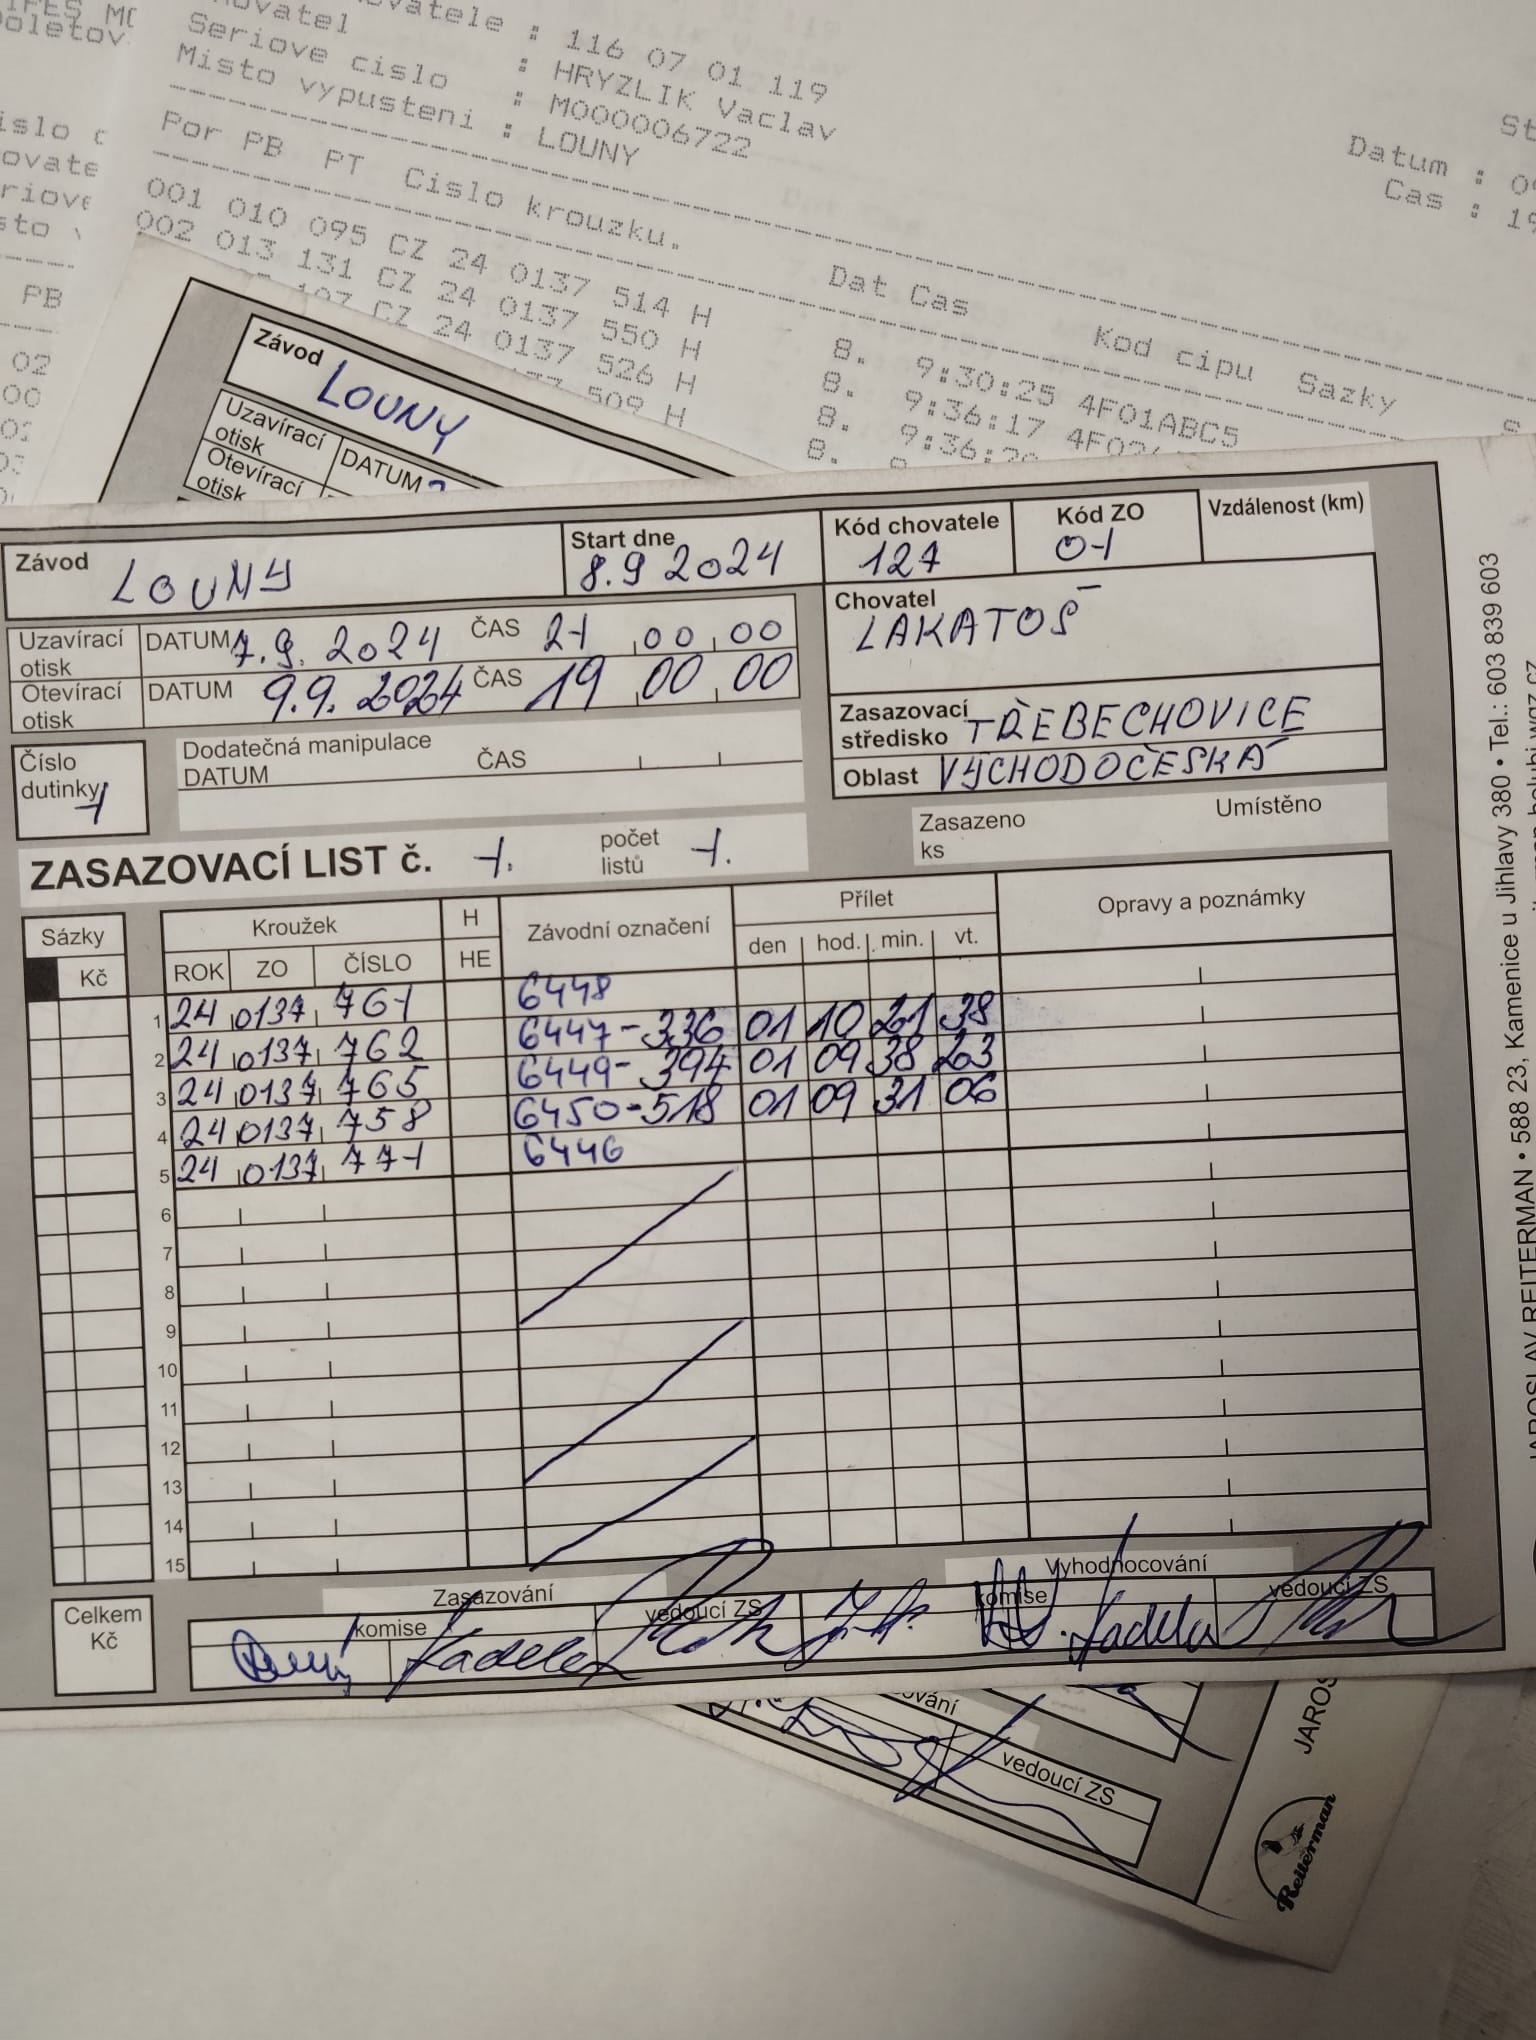 ovatele : 116 07 01 119
ovatel : HRYZLIK Vaclav
Seriove cislo : M000006722
Misto vypusteni : LOUNY
Datum : 09
Cas : 19
Por PB PT Cislo krouzku. Dat Cas Kod cipu Sazky
001 010 095 CZ 24 0137 514 H 8. 9:30:25 4F01ABC5
002 013 131 CZ 24 0137 550 H 8. 9:36:17
107 CZ 24 0137 526 H 8.
509 H 8.
PB
Závod LOUNY
Uzavírací otisk DATUM
Otevírací otisk
Závod LOUNY
Start dne 8.9 2024
Kód chovatele 127
Kód ZO 01
Vzdálenost (km)
Uzavírací otisk DATUM 7.9. 2024 ČAS 21 00 00
Otevírací otisk DATUM 9.9. 2024 ČAS 19 00 00
Chovatel LAKATOŠ
Zasazovací středisko TŘEBECHOVICE
Oblast VÝCHODOČESKÁ
Číslo dutinky 1
Dodatečná manipulace
DATUM ČAS
Zasazeno ks
Umístěno
ZASAZOVACÍ LIST č. 1. počet listů 1.
Sázky Kroužek H Závodní označení Přílet Opravy a poznámky
Kč ROK ZO ČÍSLO HE den hod. min. vt.
1 24 0137 761 6448
2 24 0137 762 6447-336 01 10 21 38
3 24 0137 765 6449-394 01 09 38 23
4 24 0137 758 6450-518 01 09 31 06
5 24 0137 771 6446
6
7
8
9
10
11
12
13
14
15
Celkem Kč
Zasazování
komise vedoucí ZS
Vyhodnocování
komise vedoucí ZS
JAROSLAV REITERMAN • 588 23, Kamenice u Jihlavy 380 • Tel.: 603 839 603
vedoucí ZS
JAROS
Reiterman